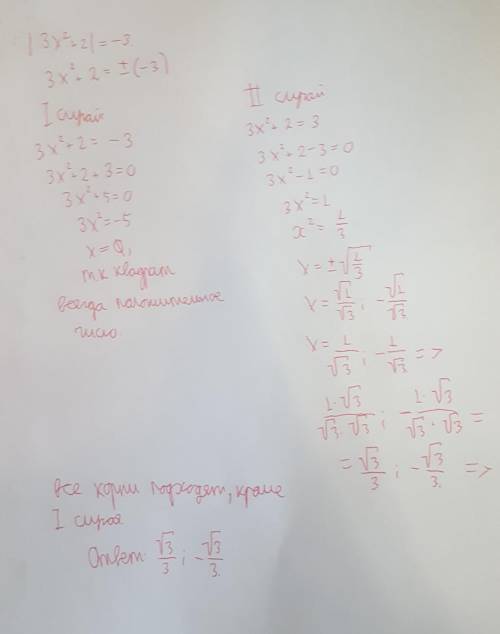 |3x²+2|=-3.
3x²+2=±(-3)
I случай
3x²+2=-3
3x²+2+3=0
3x²+5=0
3x²=-5
x=Ø,
т.к квадрат
всегда положительное
число.
II случай
3x²+2=3
3x²+2-3=0
3x²-1=0
3x²=1
x²=1/3
x=±√(1/3)
x=√1/√3; -√1/√3
x=1/√3; -1/√3 =>
(1·√3)/(√3·√3); -(1·√3)/(√3·√3) =
=√3/3; -√3/3. =>
Все корни подходят, кроме
I случая
Ответ: √3/3; -√3/3.